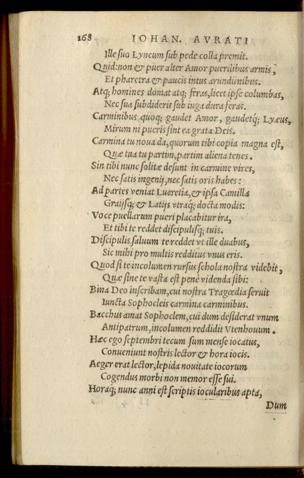 168 IOHAN. AVRATI
Ille suo Lyncum sub pede colla premit.
Quid: non & puer alter Amor puerilibus armis,
Et pharetra & paucis intus arundinibus.
Atq; homines domat atq; feras, licet ipse columbas,
Nec sua subdiderit sub iuga dura feras.
Carminibus quoq; gaudet Amor, gaudetq; Lyæus,
Mirum ni pueris sint ea grata Deis.
Carmina tu noua da, quorum tibi copia magna est,
Quæ tua tu partim, partim aliena tenes.
Sin tibi nunc solitæ desunt in carmine vires,
Nec satis ingenij, nec satis oris habes:
Ad partes veniat Lucretia, & ipsa Camilla
Graijsq; & Latijs vtraq; docta modis:
Voce puellarum pueri placabitur ira,
Et tibi te reddet discipulisq; tuis.
Discipulis saluum te reddet vt ille duabus,
Sic mihi pro multis redditus vnus eris.
Quod si te incolumen rursus schola nostra videbit,
Quæ sine te vasta est penè videnda sibi:
Bina Deo inscribam, cui nostra Tragœdia seruit
Iuncta Sophocleis carmina carminibus.
Bacchus amat Sophoclem, cui dum desiderat vnum
Antipatrum, incolumen reddidit Vtenhouum.
Hæc ego septembri tecum sum mense iocatus,
Conueniunt nostris lector & hora iocis.
Aeger erat lector, lepida nouitate iocorum
Cogendus morbi non memor esse sui.
Horaq; nunc anni est scriptis iocularibus apta,
Dum